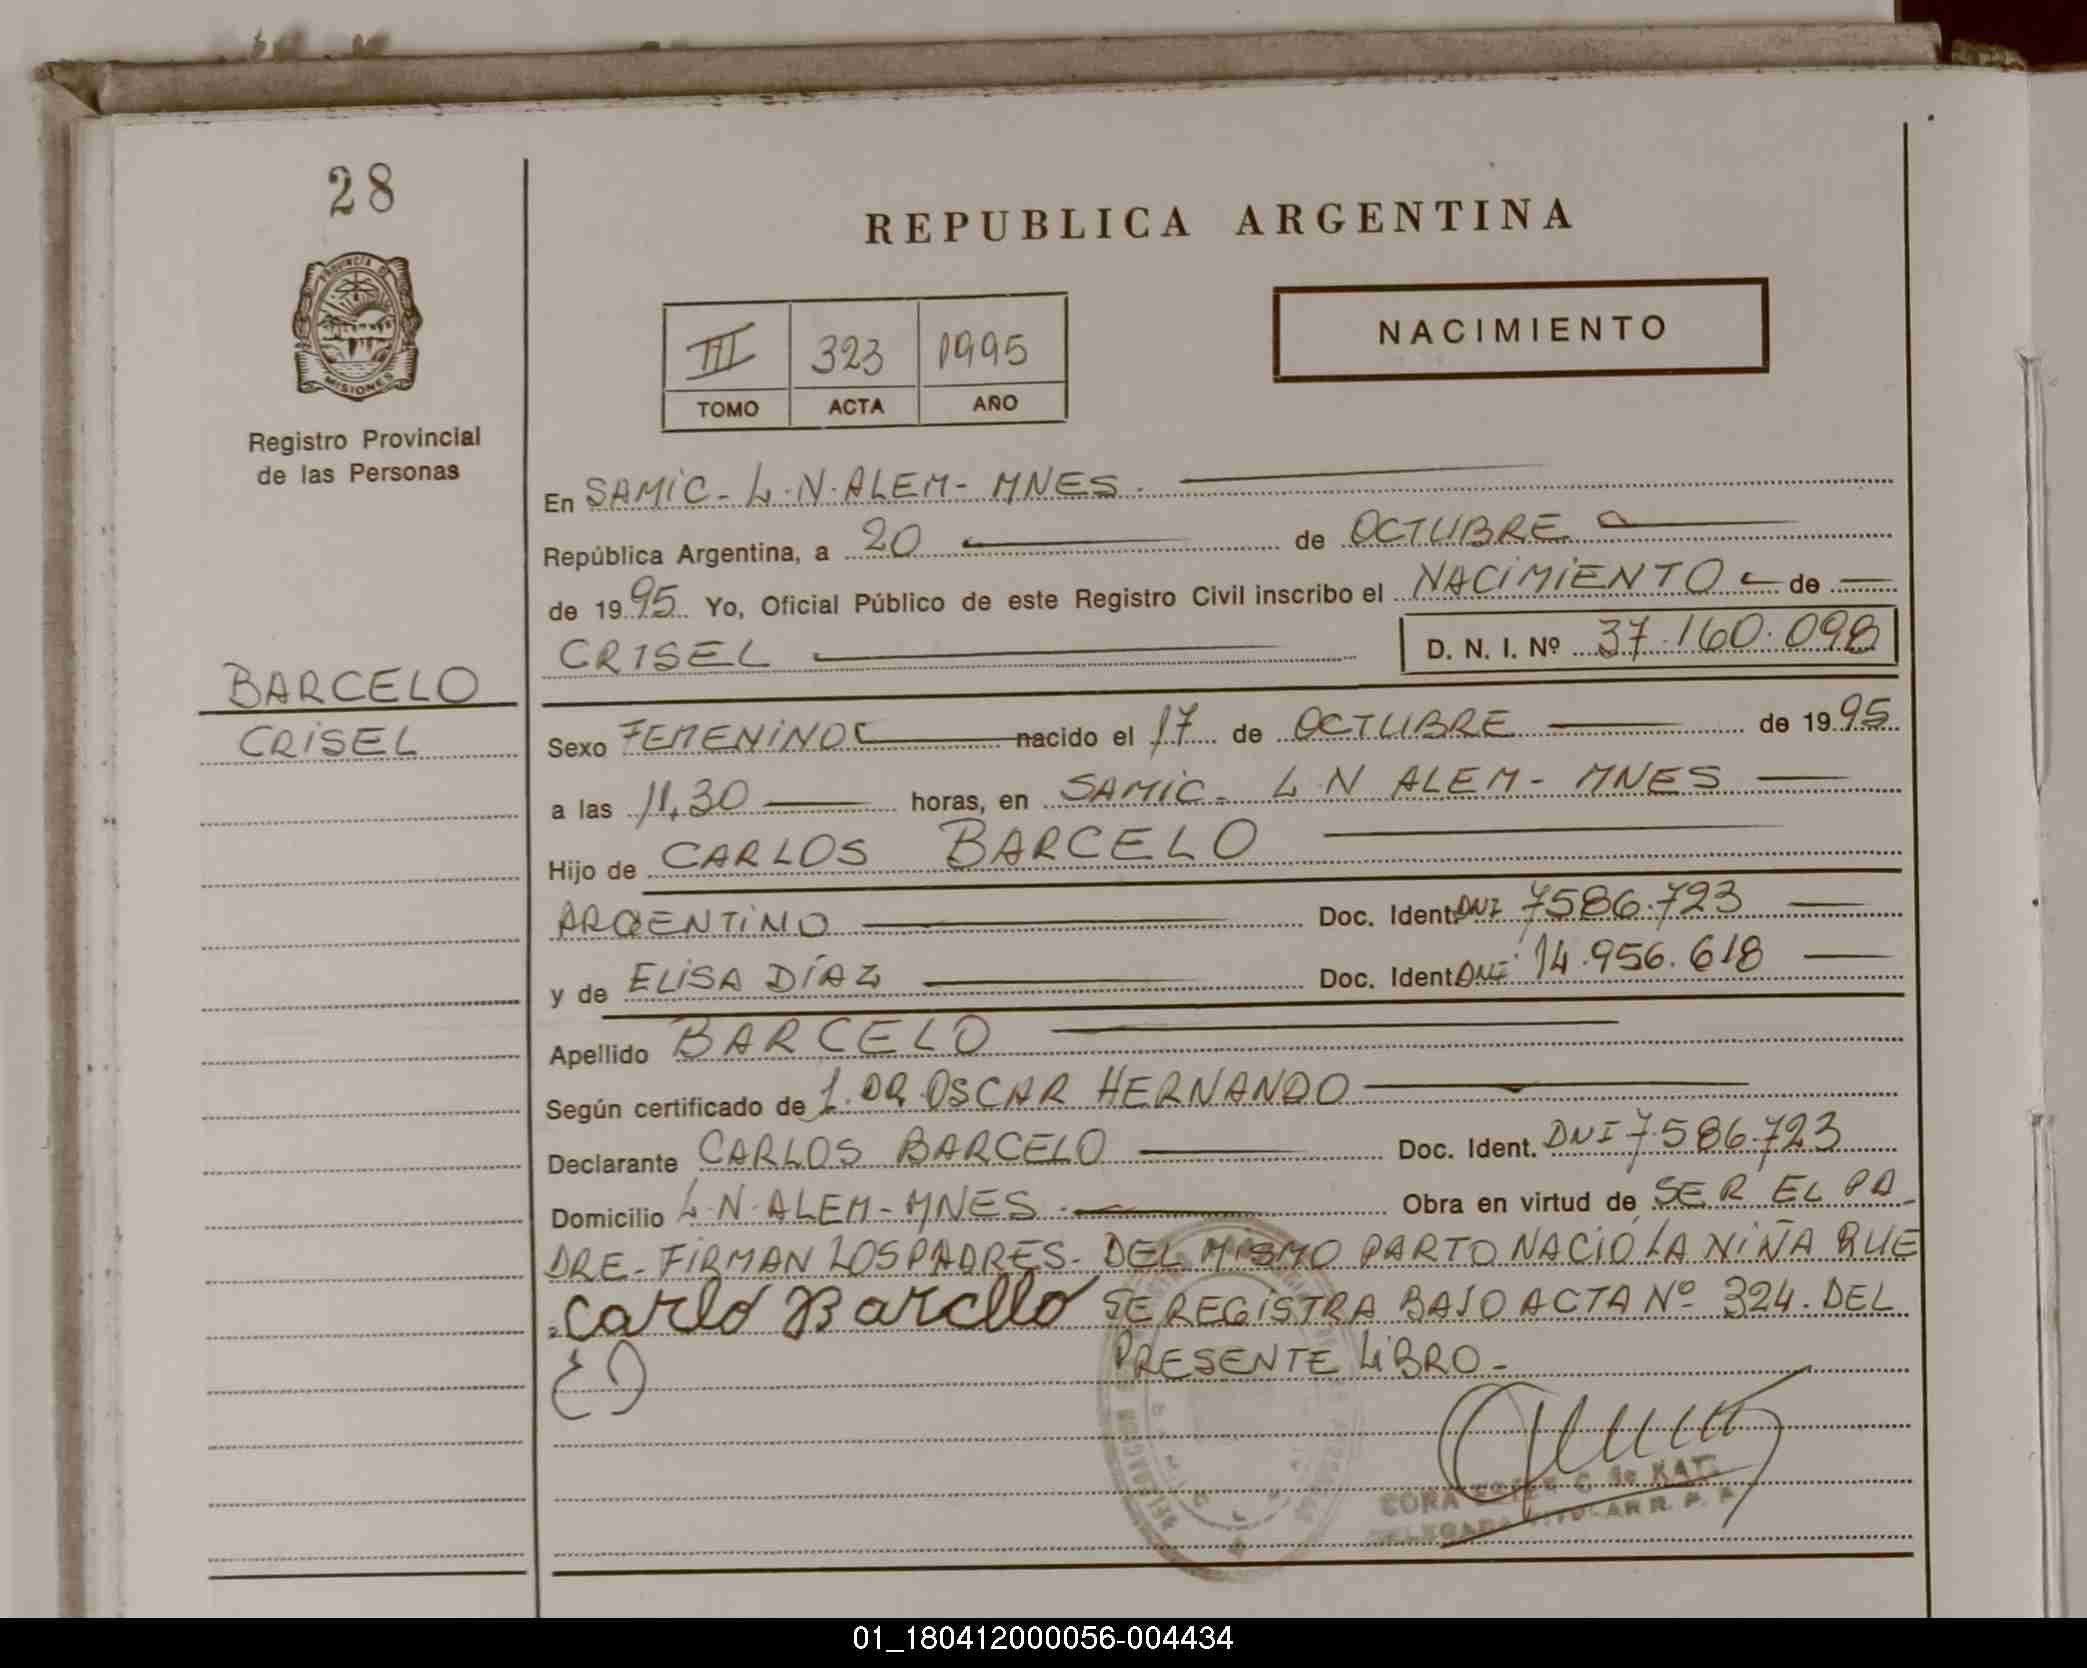 28
PROVINCIA DE
MISIONES
Registro Provincial
de las Personas
BARCELO
CRISEL
REPUBLICA ARGENTINA
III 323 1995
TOMO ACTA AÑO
NACIMIENTO
En SAMIC - L.N. ALEM - MNES.
República Argentina, a 20 de OCTUBRE
de 1995 Yo, Oficial Público de este Registro Civil inscribo el NACIMIENTO de
CRISEL D. N. I. Nº 37.160.098
Sexo FEMENINO nacido el 17 de OCTUBRE de 1995
a las 11,30 horas, en SAMIC - L N ALEM - MNES
Hijo de CARLOS BARCELO
ARGENTINO Doc. Ident. DNI 7586.723
y de ELISA DÍAZ Doc. Ident. DNI 14.956.618
Apellido BARCELO
Según certificado de 1. DR OSCAR HERNANDO
Declarante CARLOS BARCELO Doc. Ident. DNI 7.586.723
Domicilio L.N. ALEM - MNES Obra en virtud de SER EL PA-
DRE - FIRMAN LOS PADRES - DEL MISMO PARTO NACIÓ LA NIÑA QUE
Carlo Barcllo SE REGISTRA BAJO ACTA Nº 324. DEL
PRESENTE LIBRO -
CORA C de
01_180412000056-004434